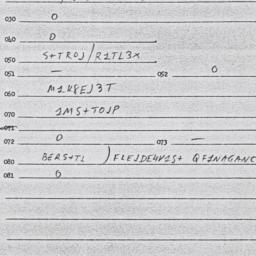 030 O
040 O
050 S+TROJ/R1TL3X
051 — 052 O
060 M1K8EJ3T
070 1MS+TOJP
071
072 O 073 —
080 BERS+TL )FLEJDE4V1S+ QF1NAGANC
081 O